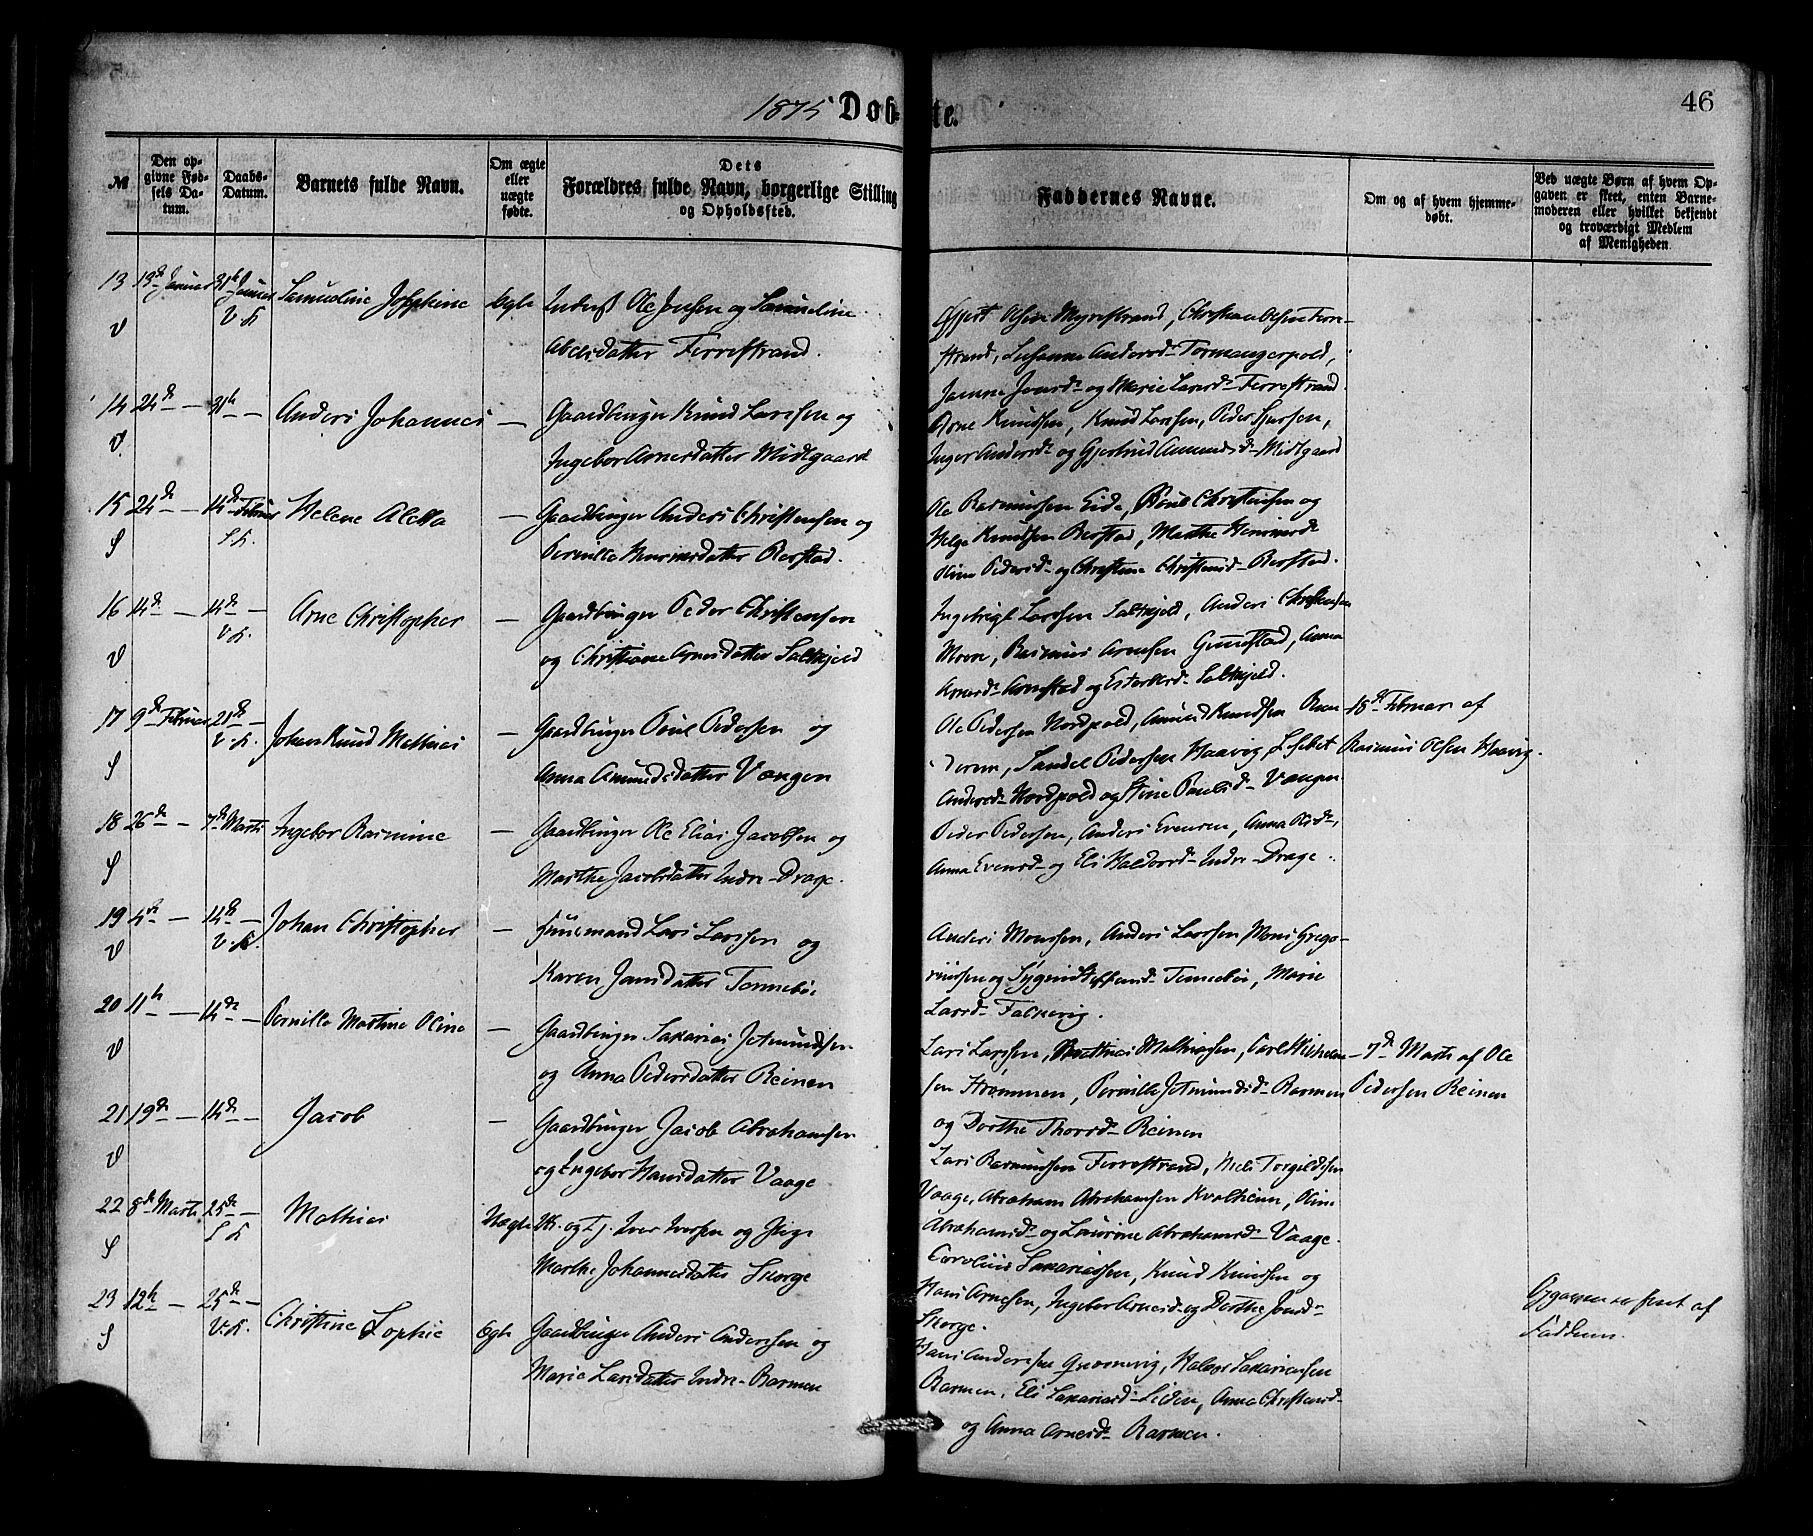 1875 Døb-te.
46
№
Den op-
givne Fød-
sels Da-
tum.
Daabs-
Datum.
Barnets fulde Navn.
Om ægte
eller
uægte
fødte.
Dets
Forældres fulde Navn, borgerlige Stilling
og Opholdssted.
Faddernes Navne.
Om og af hvem hjemme-
døbt.
Ved uægte Børn af hvem Op-
gaven er skeet, enten Barne-
moderen eller hvilket bekjendt
og troværdigt Medlem
af Menigheden.
13 13de Januar 31te Januar Samueline Josephine Ægte Inderst Ole Jensen og Samueline
V V. K. Abelsdatter Ferrestrand.
Olsen Myrestrand, Christian Olsen Ferre-
strand, Susanne Andersd. Tormangerpold,
Janne Jensd. og Marie Larsd. Ferrestrand.
14 24de — 31te — Anders Johannes — Gaardbruger Knud Larssen og
V. Ingebor Arnesdatter Midtgaard
Arne Knudsen, Knud Larssen, Peder Sjursen,
Inger Andersd. og Gjertrud Amundsd. Midtgaard
15 24de — 14de Februar Helene Aletta — Gaardbruger Anders Christensen og
S S. K. Pernille Rasmusdatter Berstad.
Ole Rasmussen Eide, Poul Christensen og
Helge Knudsen Berstad, Marthe
Oline Pedersd. og Christine Christensd. Berstad.
16 14de — 14de — Arne Christopher — Gaardbruger Peder Christensen
V V. K. og Christiane Arnesdatter Saltkjeld
Ingebrigt Larssen Saltkjeld, Anders Christensen
Moore, Rasmus Arnesen Grundstad, Anna
Arnesd. Arnestad og Saltkjeld.
17 9de Februar 21de — Johan Knud Mathias — Gaardbruger Poul Pedersen og
S V. K. Anna Amundsdatter Vængen
Ole Pedersen Nordpold, Amund Knudsen
Sandel Pedersen Haavig, Lisbet
Andersd. Nordpold og Stine Poulsd. Vængen.
15de Februar af
Rasmus Olsen Haavig.
18 26de — 7de Marts Ingebor Rasmine — Gaardbruger Ole Elias Jacobsen og
S Marthe Jacobsdatter Indre-Drage.
Peder Pedersen, Anders Evensen, Anna Olsd.,
Anna Evensd. og Eli Haldorsd. Indre-Drage.
19 4de — 14de — Johan Christopher — Huusmand Lars Larssen og
V V. K. Karen Jansdatter Tennebøe
Anders Monssen, Anders Larssen, Mons Grego-
riussen og Tennebøe, Marie
Larsd. Falkevig.
20 11te — 14de — Pernille Martine Oline — Gaardbruger Sakarias Jetmundsen
V og Anna Pedersdatter Reinen
Lars Larssen, Mathias Mathiassen, Carl Wilhelm-
sen Strømmen, Pernille Jetmundsd. Barmen
og Dorthe Thorsd. Reinen
7de Marts af Ole
Pedersen Reinen
21 19de — 14de — Jacob — Gaardbruger Jacob Abrahamsen
V og Ingebor Hansdatter Vaage
Lars Rasmussen Ferrestrand, Niels Torgildssen
Vaage, Abraham Abrahamsen Kvalheim, Oline
Abrahamsd. og Laurine Abrahamsd. Vaage.
22 8de Marts 25de — Mathias Uægte Uk. og Lj. Iver Iversen og Pige
S S. K. Marthe Johannesdatter Skorge
Carolius Sakariassen, Knud Knudsen og
Hans Arnesen, Ingebor Arnesd. og Dorthe Jonsd.
Skorge.
Opgaven er skeet af
Faddrene.
23 12te — 25de — Christine Sophie Ægte Gaardbruger Anders Anderssen og
S V. K. Marie Larsdatter Indre-Barmen
Hans Anderssen Grønevig, Sakariassen
Barmen, Eli Sakariasd. Liden, Anna Christensd.
og Anna Arnesd. Barmen.